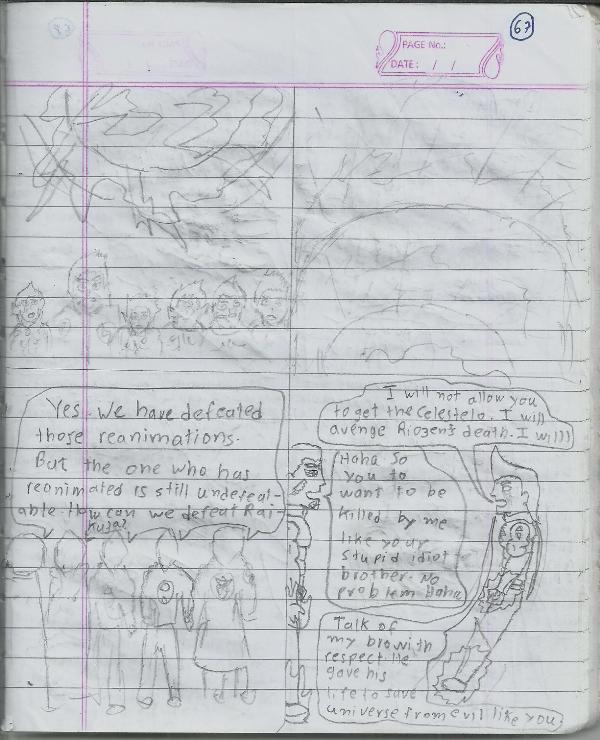 67
PAGE No.:
DATE: / /
Yes. We have defeated
those reanimations.
But the one who has
reanimated is still undefeat-
able. How can we defeat Rai-
kuza?
I will not allow you
to get the Celestelo. I will
avenge Riozen's death. I will!
Haha so
you to
want to be
killed by me
like your
stupid idiot
brother. No
problem Haha
Talk of
my bro with
respect. He
gave his
life to save
universe from evil like you